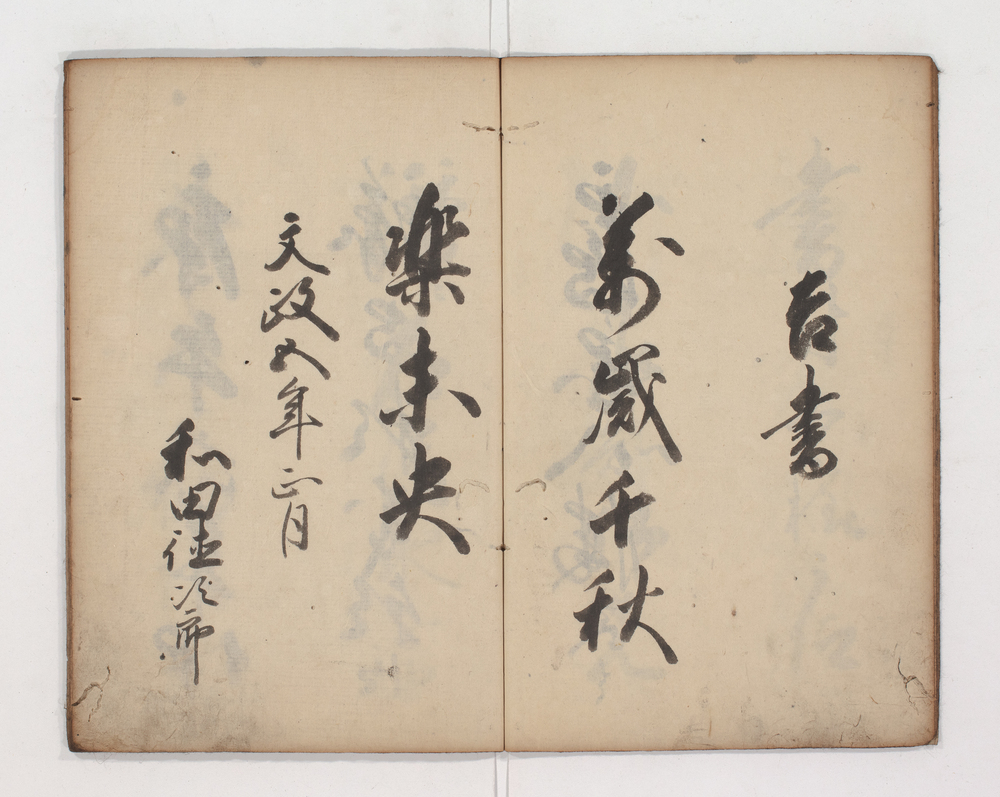 吉書
萬歳千秋
楽未央
文政五年正月
和田徳次郎